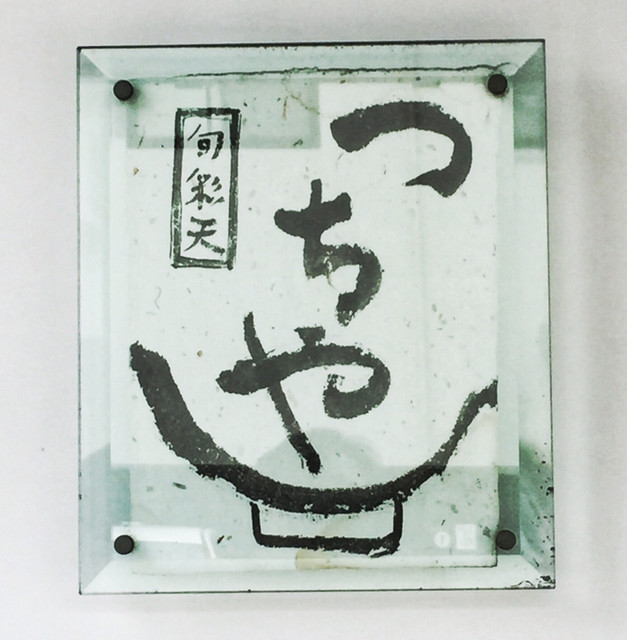 つちや
旬彩天